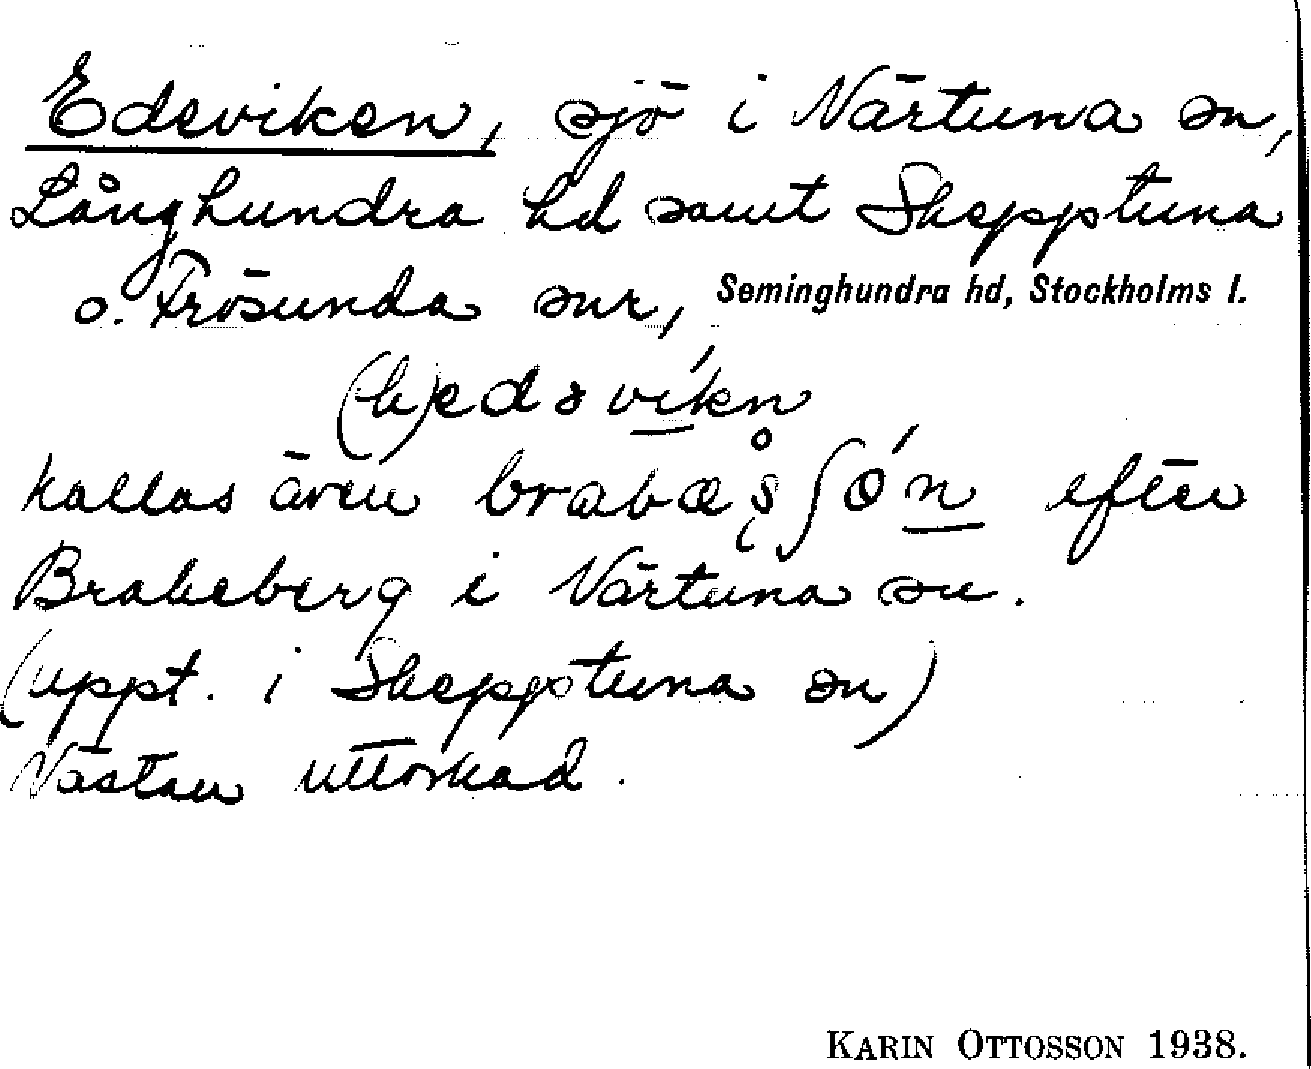 Edsviken, sjö i Närtuna sn,
Långhundra hd samt Skepptuna
o. Frösunda snr, Seminghundra hd, Stockholms l.
(h)edsvíkn
kallas även efter
Brabeberg i Närtuna sn.
(uppt. i Skepptuna sn)
Nästan uttorkad.
KARIN OTTOSSON 1938.